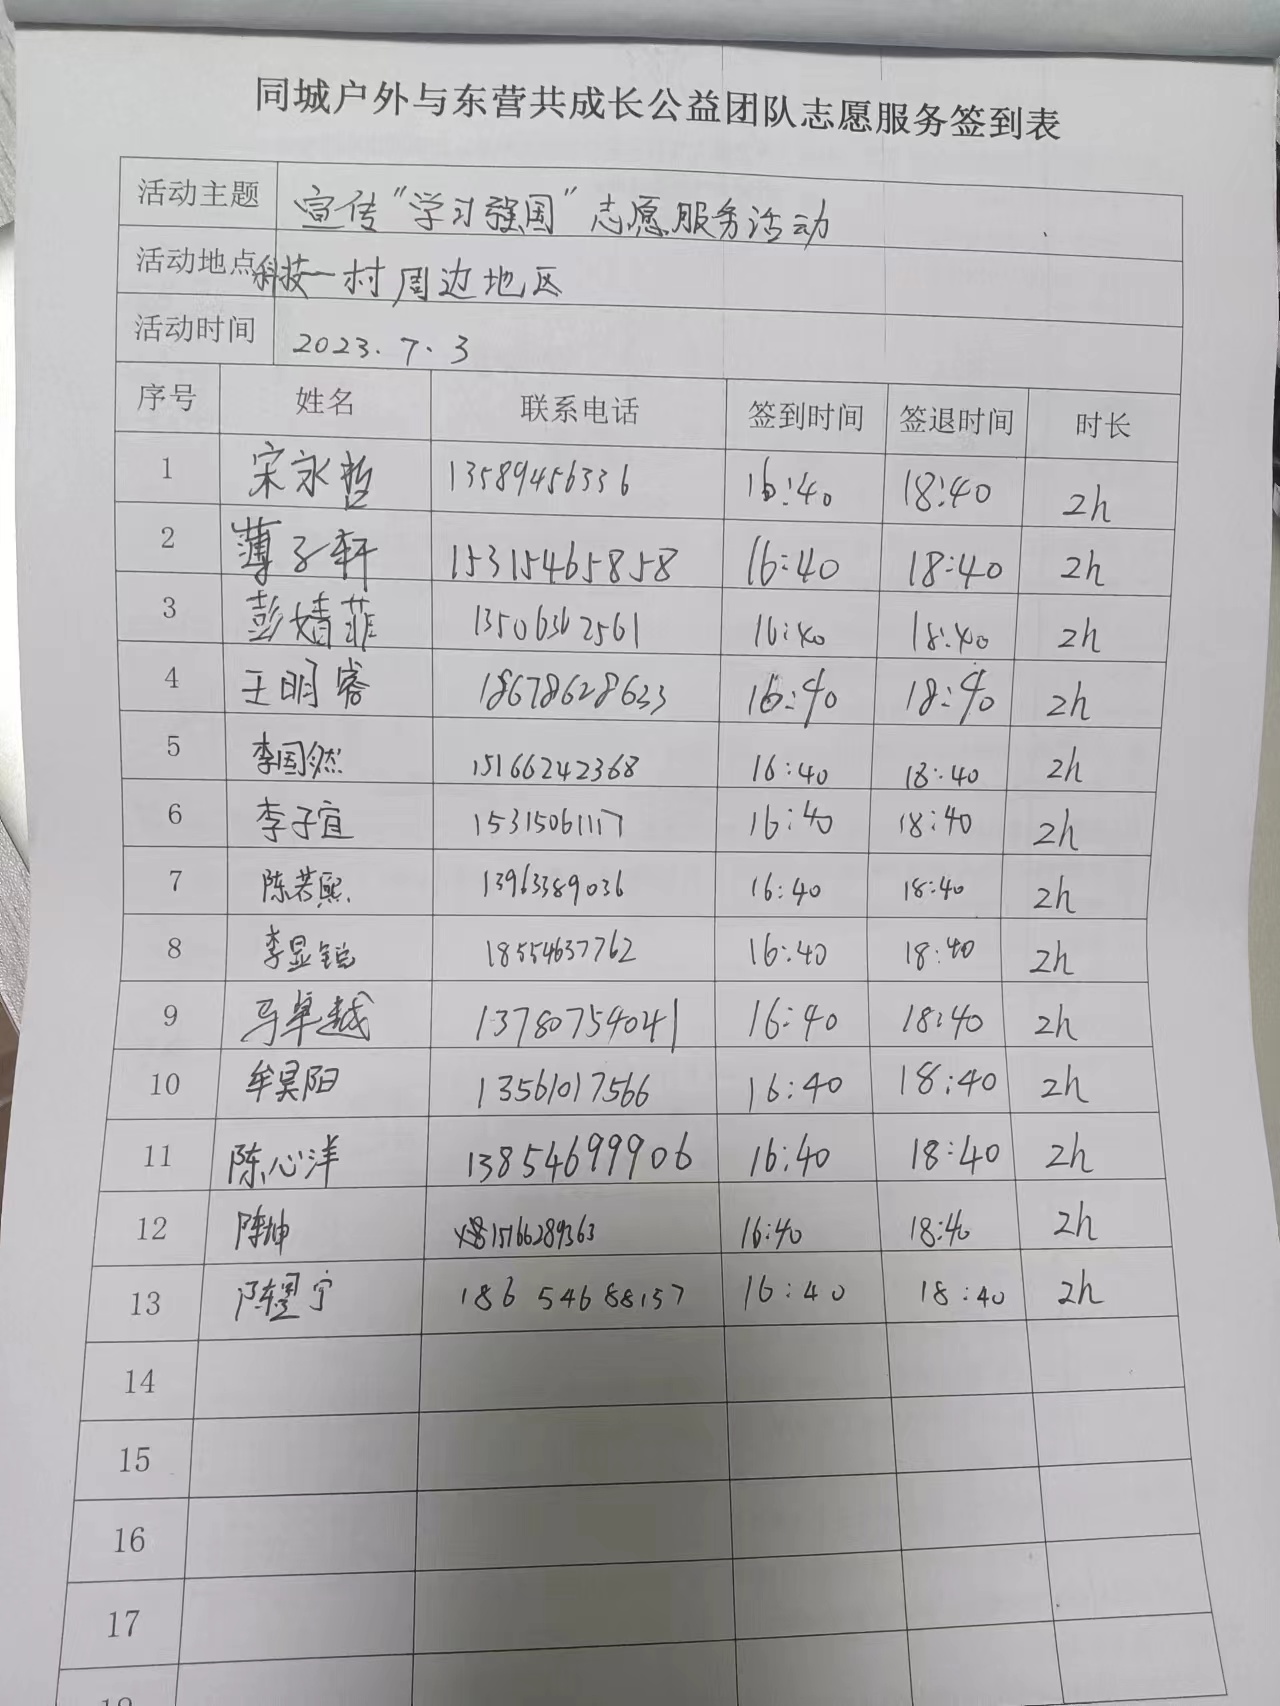 同城户外与东营共成长公益团队志愿服务签到表
活动主题 宣传“学习强国”志愿服务活动
活动地点 科技一村周边地区
活动时间 2023.7.3
序号 姓名 联系电话 签到时间 签退时间 时长
1 宋永哲 13589456336 16:40 18:40 2h
2 薄子轩 15315465858 16:40 18:40 2h
3 彭婧菲 13506362561 16:40 18:40 2h
4 王明睿 18678628633 16:40 18:40 2h
5 李国然 15166242368 16:40 18:40 2h
6 李子宜 15315061117 16:40 18:40 2h
7 陈若熙 13963389036 16:40 18:40 2h
8 李显锐 18554637762 16:40 18:40 2h
9 马卓越 13780754041 16:40 18:40 2h
10 牟昊阳 13561017566 16:40 18:40 2h
11 陈心洋 13854699906 16:40 18:40 2h
12 陈坤 15166289363 16:40 18:40 2h
13 陈翌宁 18654688157 16:40 18:40 2h
14
15
16
17